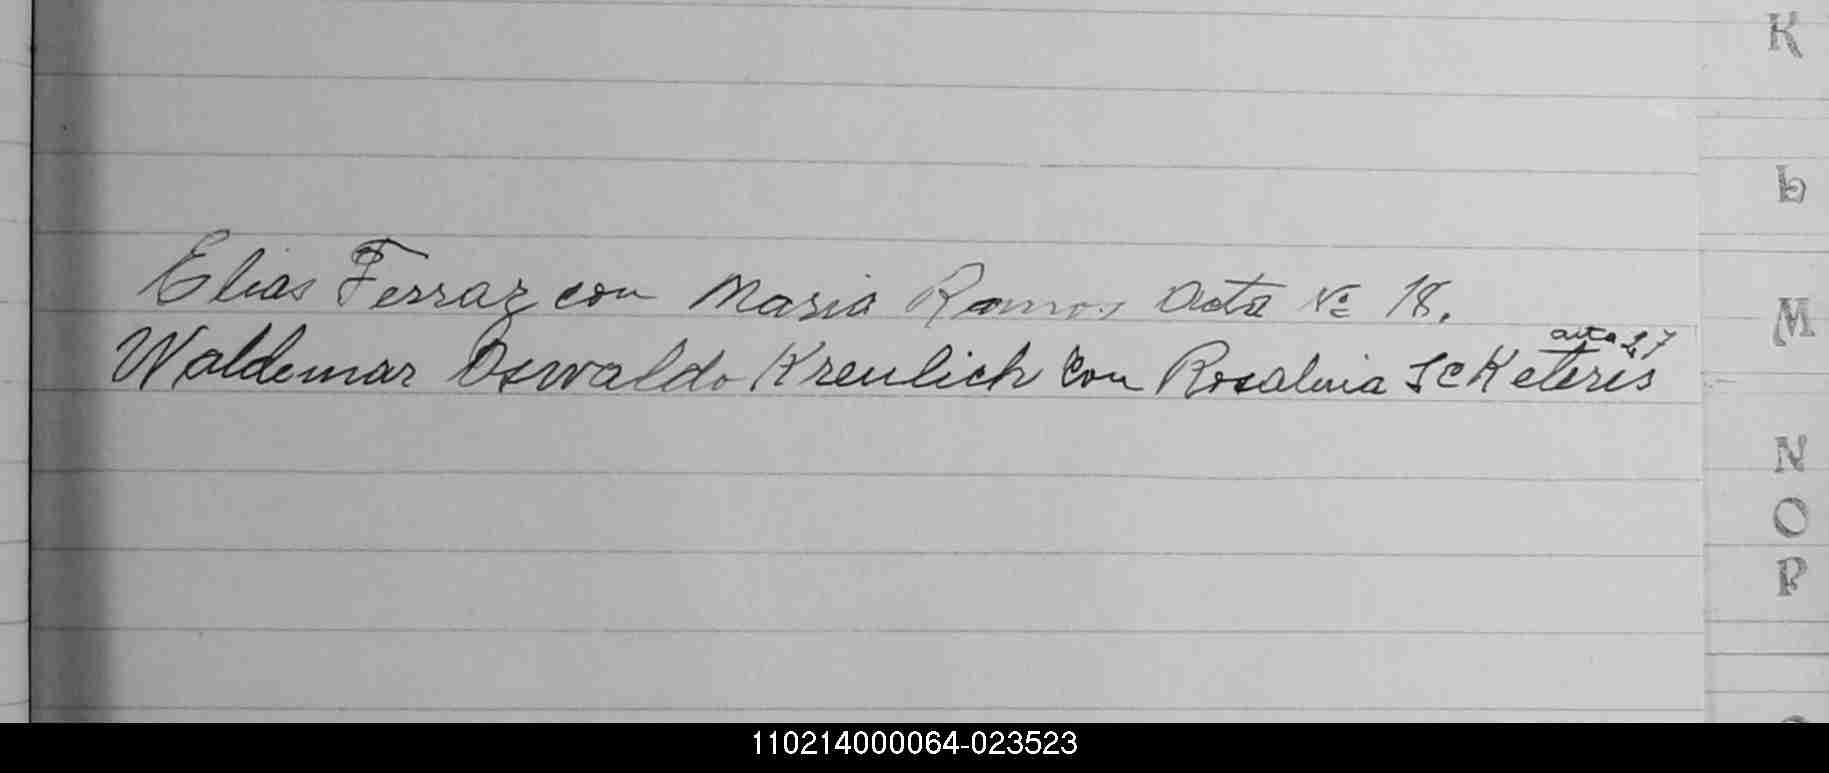 K
L
Elias Ferraz con Maria Ramos Acta Nº 18.
M
acta 27
Waldemar Oswaldo Kreulich con Rosalina ScKeteris
N
O
P
110214000064-023523